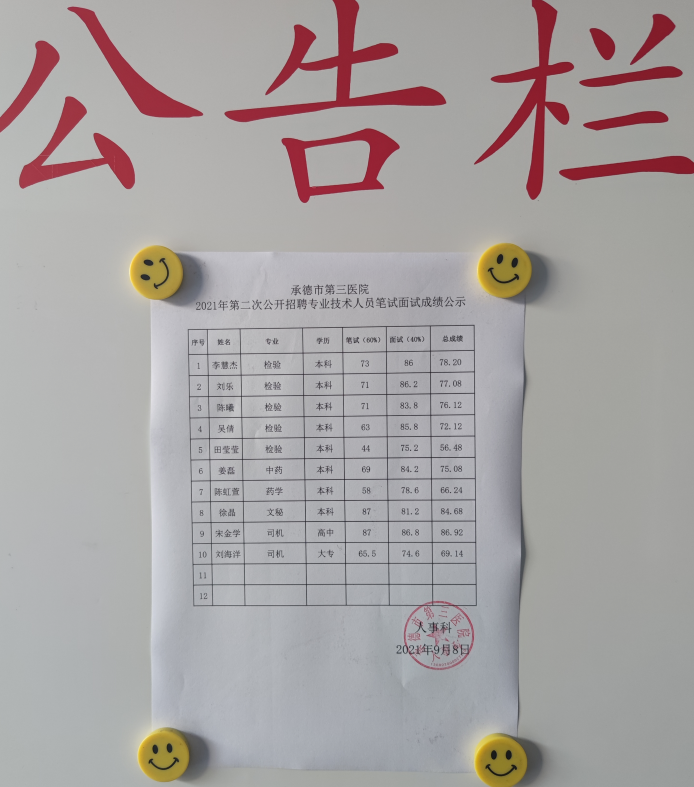 公告栏
承德市第三医院
2021年第二次公开招聘专业技术人员笔试面试成绩公示
序号 姓名 专业 学历 笔试(60%) 面试(40%) 总成绩
1 李慧杰 检验 本科 73 86 78.20
2 刘乐 检验 本科 71 86.2 77.08
3 陈曦 检验 本科 71 83.8 76.12
4 吴倩 检验 本科 63 85.8 72.12
5 田莹莹 检验 本科 44 75.2 56.48
6 姜磊 中药 本科 69 84.2 75.08
7 陈虹萱 药学 本科 58 78.6 66.24
8 徐晶 文秘 本科 87 81.2 84.68
9 宋金学 司机 高中 87 86.8 86.92
10 刘海洋 司机 大专 65.5 74.6 69.14
11
12
人事科
2021年9月8日
德市第三医院